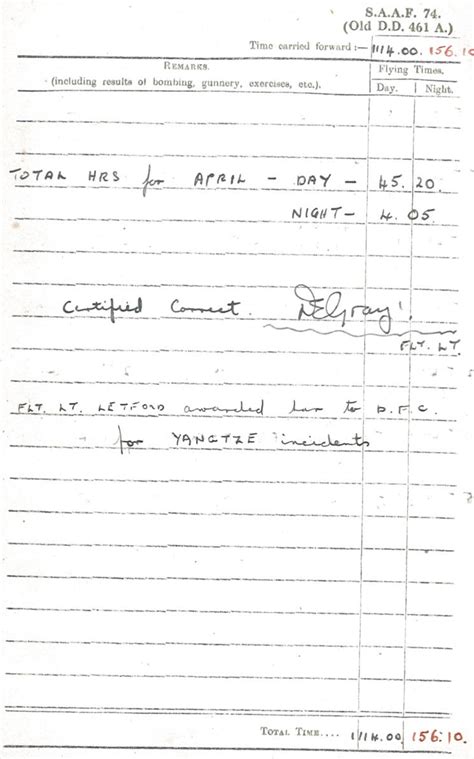 S.A.A.F. 74.
(Old D.D. 461 A.)
Time carried forward :— 1114.00. 156.10
REMARKS. Flying Times.
(including results of bombing, gunnery, exercises, etc.). Day. Night.
TOTAL HRS for APRIL - DAY - 45. 20.
NIGHT - 4. 05.
Certified Correct. DEGray
FLT. LT.
FLT. LT. LETFORD awarded bar to D.F.C.
for YANGTZE incidents
TOTAL TIME.... 1114.00. 156.10.